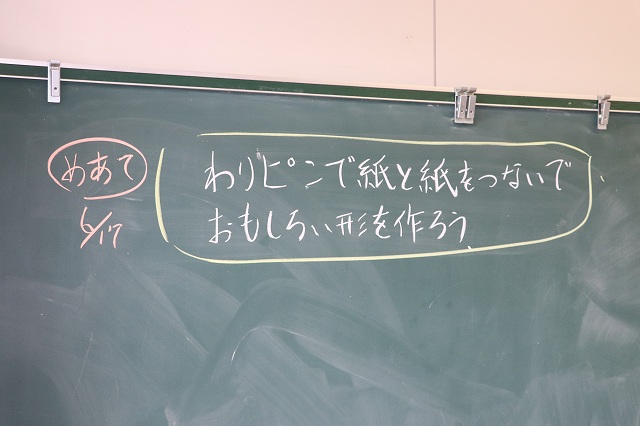 めあて
6/17
わりピンで紙と紙をつないで
おもしろい形を作ろう